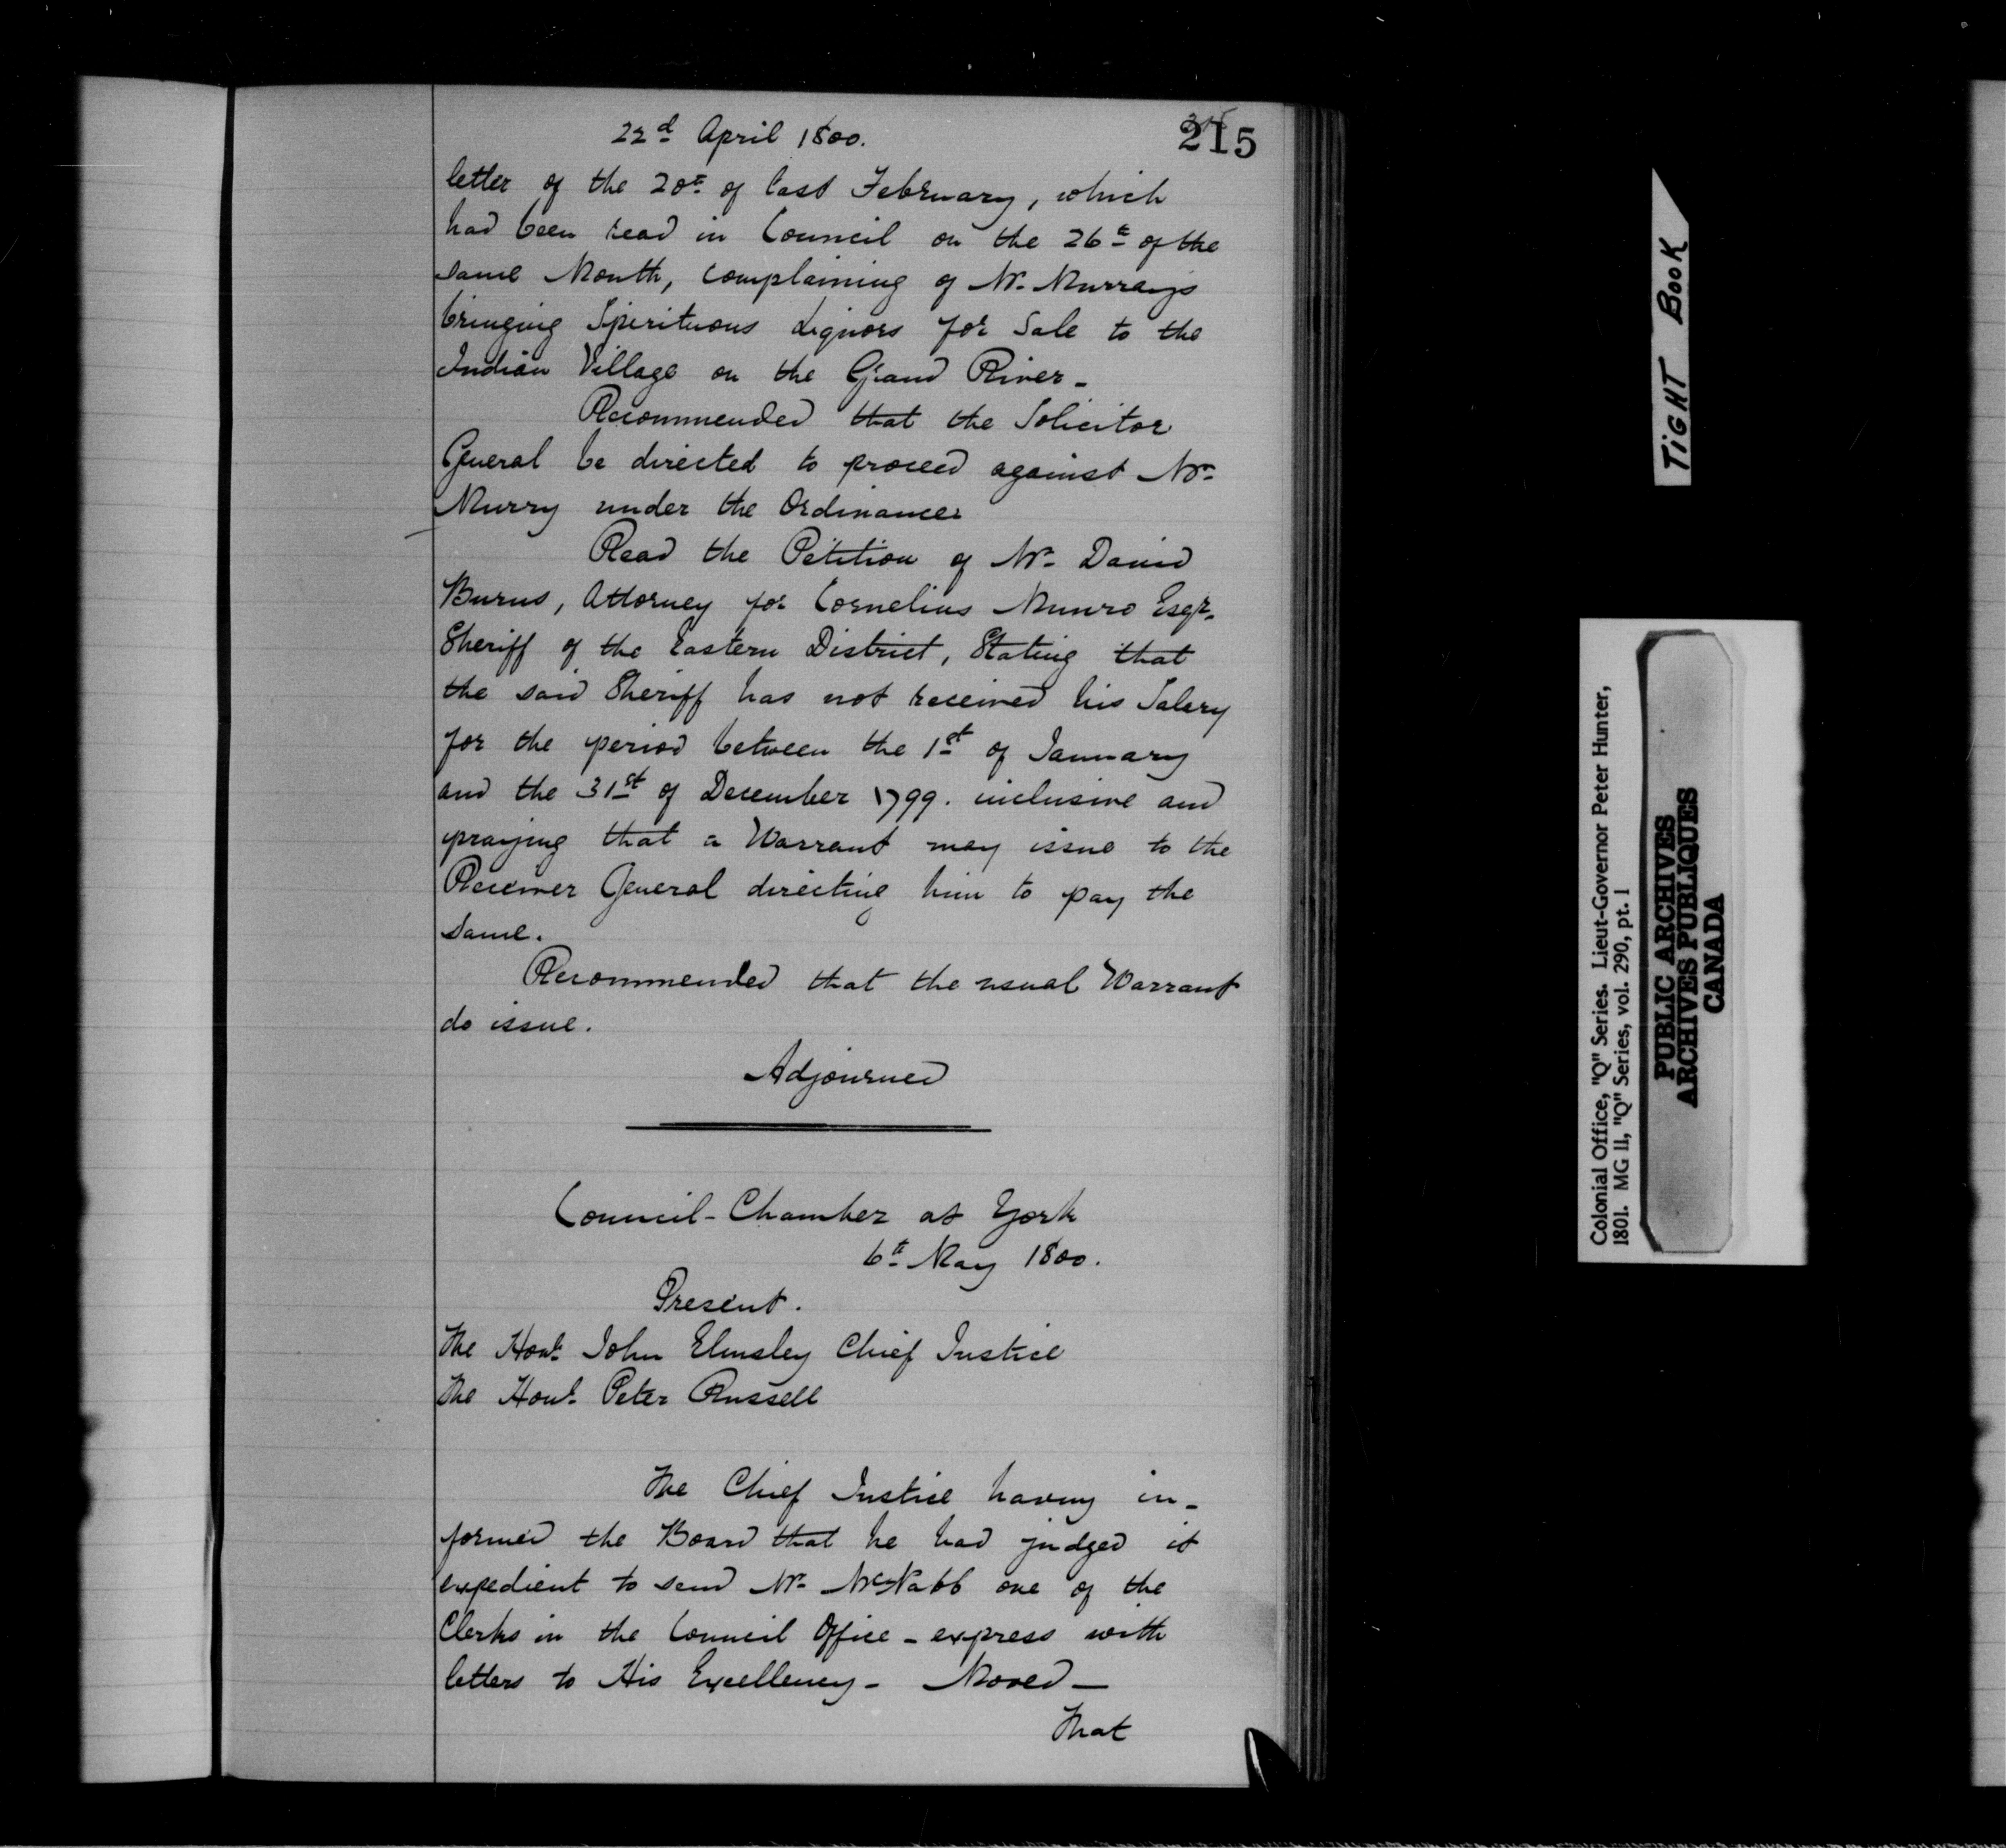 22d April 1800.
215
letter of the 20th of last February, which
had been read in Council on the 26th of the
same Month, complaining of Mr. Murray's
bringing Spirituous Liquors for Sale to the
Indian Village on the Grand River -
Recommended that the Solicitor
General be directed to proceed against Mr.
Murry under the Ordinances
Read the Petition of Mr. David
Burns, Attorney for Cornelius Munro Esqr.
Sheriff of the Eastern District, Stating that
the said Sheriff has not received his Salery
for the period between the 1st of January
and the 31st of December 1799. inclusive and
praying that a Warrant may issue to the
Receiver General directing him to pay the
same.
Recommended that the usual Warrant
do issue.
Adjourned
Council-Chamber at York
6th May 1800.
Present.
The Honl. John Elmsley Chief Justice
The Honl. Peter Russell
The Chief Justice having in-
formed the Board that he had judged it
expedient to send Mr. McNabb one of the
Clerks in the Council Office - express with
letters to His Excellency - Moved -
That
TIGHT BOOK
Colonial Office, "Q" Series. Lieut-Governor Peter Hunter,
1801. MG 11, "Q" Series, vol. 290, pt. 1
PUBLIC ARCHIVES
ARCHIVES PUBLIQUES
CANADA